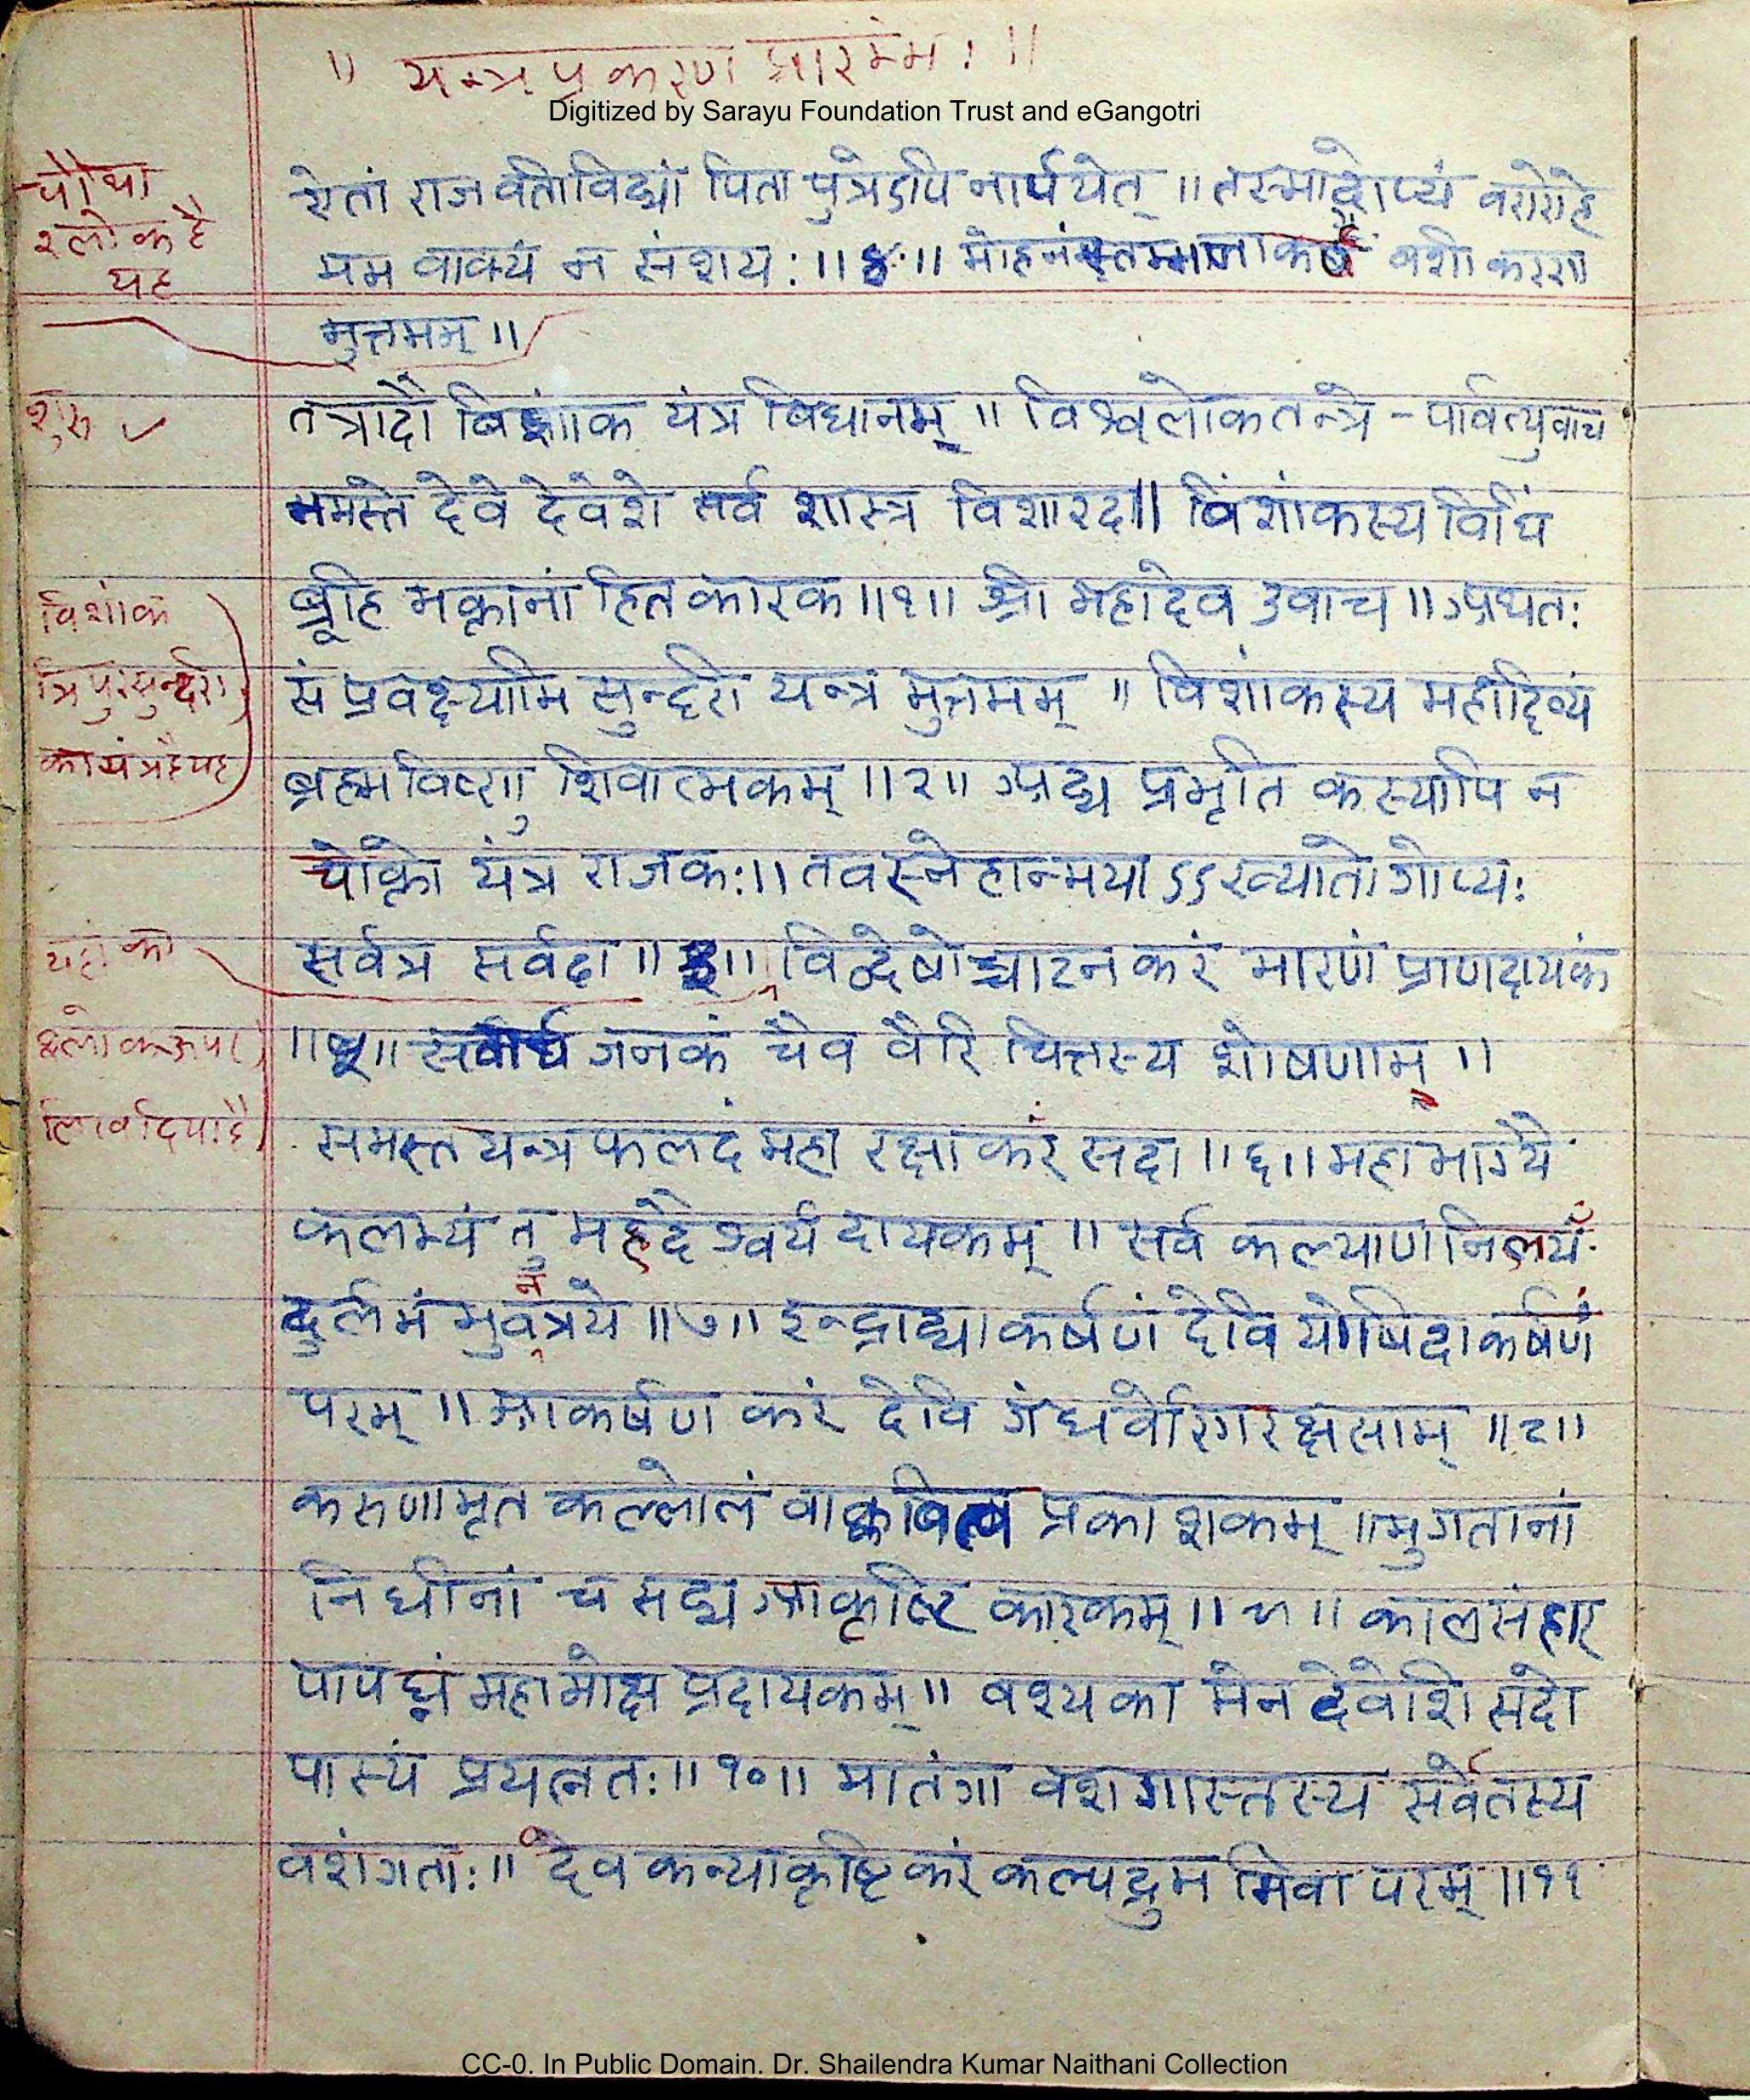 ॥ यन्त्र प्रकरण प्रारम्भः ॥
Digitized by Sarayu Foundation Trust and eGangotri
चौथा
श्लोक है
यह
येतां राजवतीविद्यां पिता पुत्रेऽपि नार्पयेत् ॥ तस्माद्गोप्यं वरारोहे
मम वाक्यं न संशयः ॥४॥ मोहनंस्तम्भनाकर्षं वशीकरण
मुत्तमम् ॥
शुरु ✓
तत्रादौ विंशांक यंत्र विधानम् ॥ विश्वलोकतन्त्रे - पार्वत्युवाच
नमस्ते देवे देवेशे सर्व शास्त्र विशारद ॥ विंशांकस्य विधिं
ब्रूहि भक्तानां हितकारक ॥१॥ श्री महादेव उवाच ॥ अथतः
विंशांक
त्रिपुरसुन्दरी
का यंत्र है यह
सं प्रवक्ष्यामि सुन्दरी यन्त्र मुत्तमम् ॥ विंशांकस्य महादिव्यं
ब्रह्म विष्णु शिवात्मकम् ॥२॥ अद्य प्रभृति कस्यापि न
चोक्तो यंत्र राजकः ॥ तवस्नेहान्मयाऽऽख्यातो गोप्यः
यहां का
श्लोक ऊपर
लिख दिया है
सर्वत्र सर्वदा ॥३॥ विद्वेषोच्चाटन करं मारणं प्राणदायकं
॥५॥ सर्वार्थ जनकं चैव वैरि चित्तस्य शोषणाम् ॥
समस्त यन्त्र फलदं महा रक्षा करं सदा ॥६॥ महा भाग्यै
फलम्यं तु महदेश्वर्य दायकम् ॥ सर्व कल्याण निलयं
दुर्लभं भुवनत्रये ॥७॥ इन्द्राद्याकर्षणं देवि योषिदाकर्षणं
परम् ॥ आकर्षण करं देवि गंधर्वोरगरक्षसाम् ॥८॥
करुणामृत कल्लोलं वाक्कवित्व प्रकाशकम् ॥ भुगतानां
निधीनां च सद्य आकृष्टि कारकम् ॥९॥ काल संहार
पापघ्नं महामोक्ष प्रदायकम् ॥ वश्यका मेन देवेशि सदो
पास्यं प्रयत्नतः ॥१०॥ मातंगा वशगास्तस्य सर्वेतस्य
वशंगताः ॥ देव कन्याकृष्टि करं कल्पद्रुम मिवा परम् ॥११
CC-0. In Public Domain. Dr. Shailendra Kumar Naithani Collection